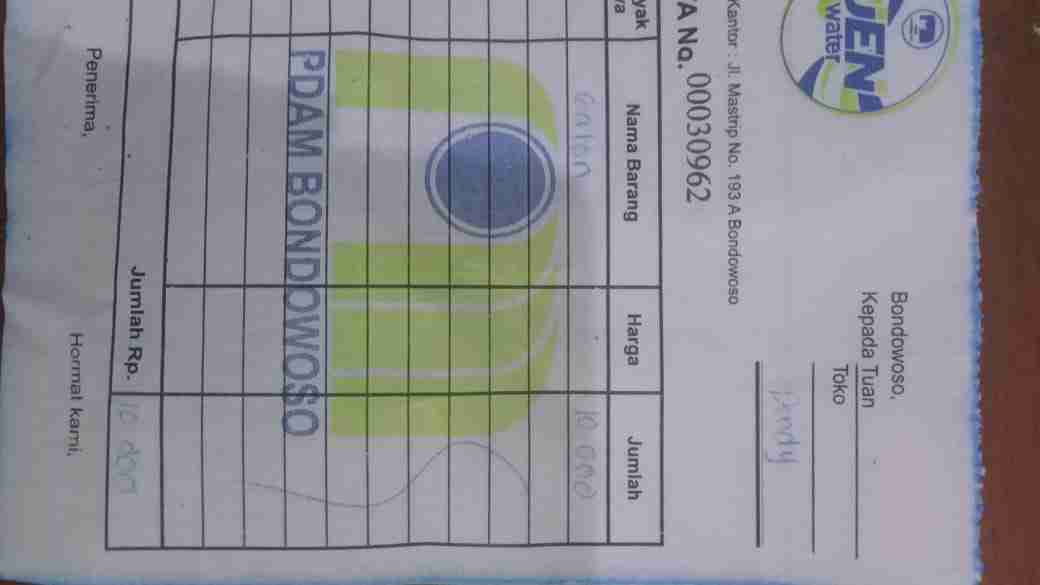 JEN
water
Kantor : Jl. Mastrip No. 193 A Bondowoso
TA No. 00030962
Bondowoso,
Kepada Tuan
Toko
Dendy
yak
Nama Barang
Harga
Jumlah
Galon
10 000
PDAM BONDOWOSO
Jumlah Rp.
10 000
Penerima,
Hormat kami,